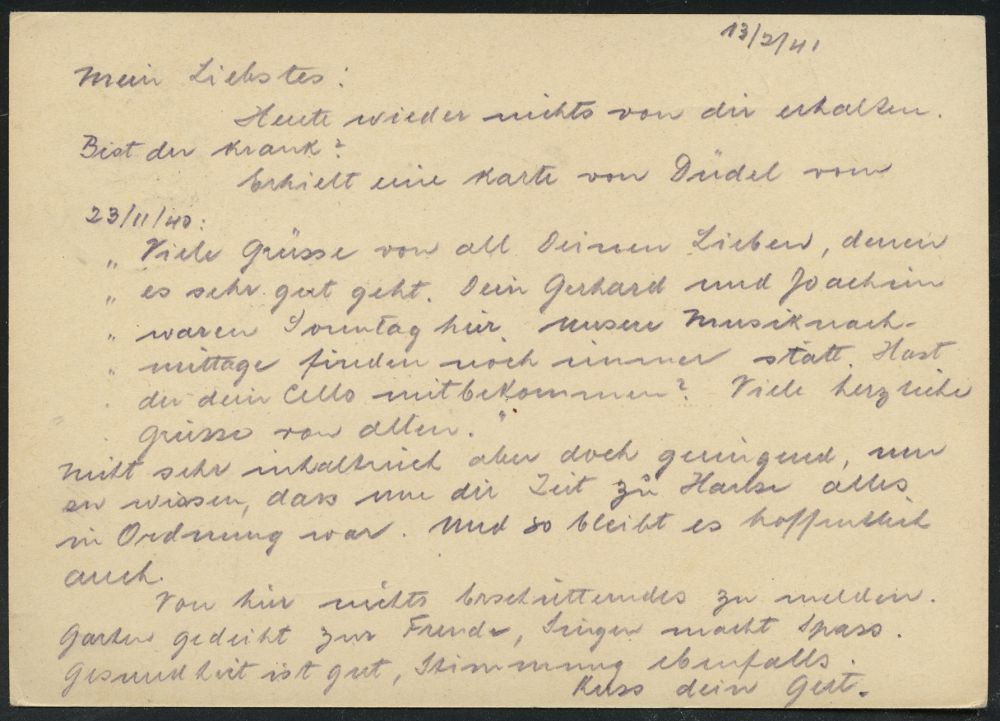 13/2/41
Mein Liebstes:
Heute wieder nichts von dir erhalten.
Bist du krank?
Erhielt eine Karte von Düdel vom
23/11/40:
„ Viele Grüsse von all Deinen Lieben, denen
„ es sehr gut geht. Dein Gerhard und Joachim
„ waren Sonntag hier. Unsere Musiknach-
„ mittage finden noch immer statt. Hast
„ du dein Cello mitbekommen? Viele herzliche
„ Grüsse von allen."
Nicht sehr inhaltreich aber doch genügend, um
zu wissen, dass um die Zeit zu Hause alles
in Ordnung war. Und so bleibt es hoffentlich
auch.
Von hier nichts Erschütterndes zu melden.
Garten gedeiht zur Freude, Singen macht Spass.
Gesundheit ist gut, Stimmung ebenfalls.
Kuss dein Gert.